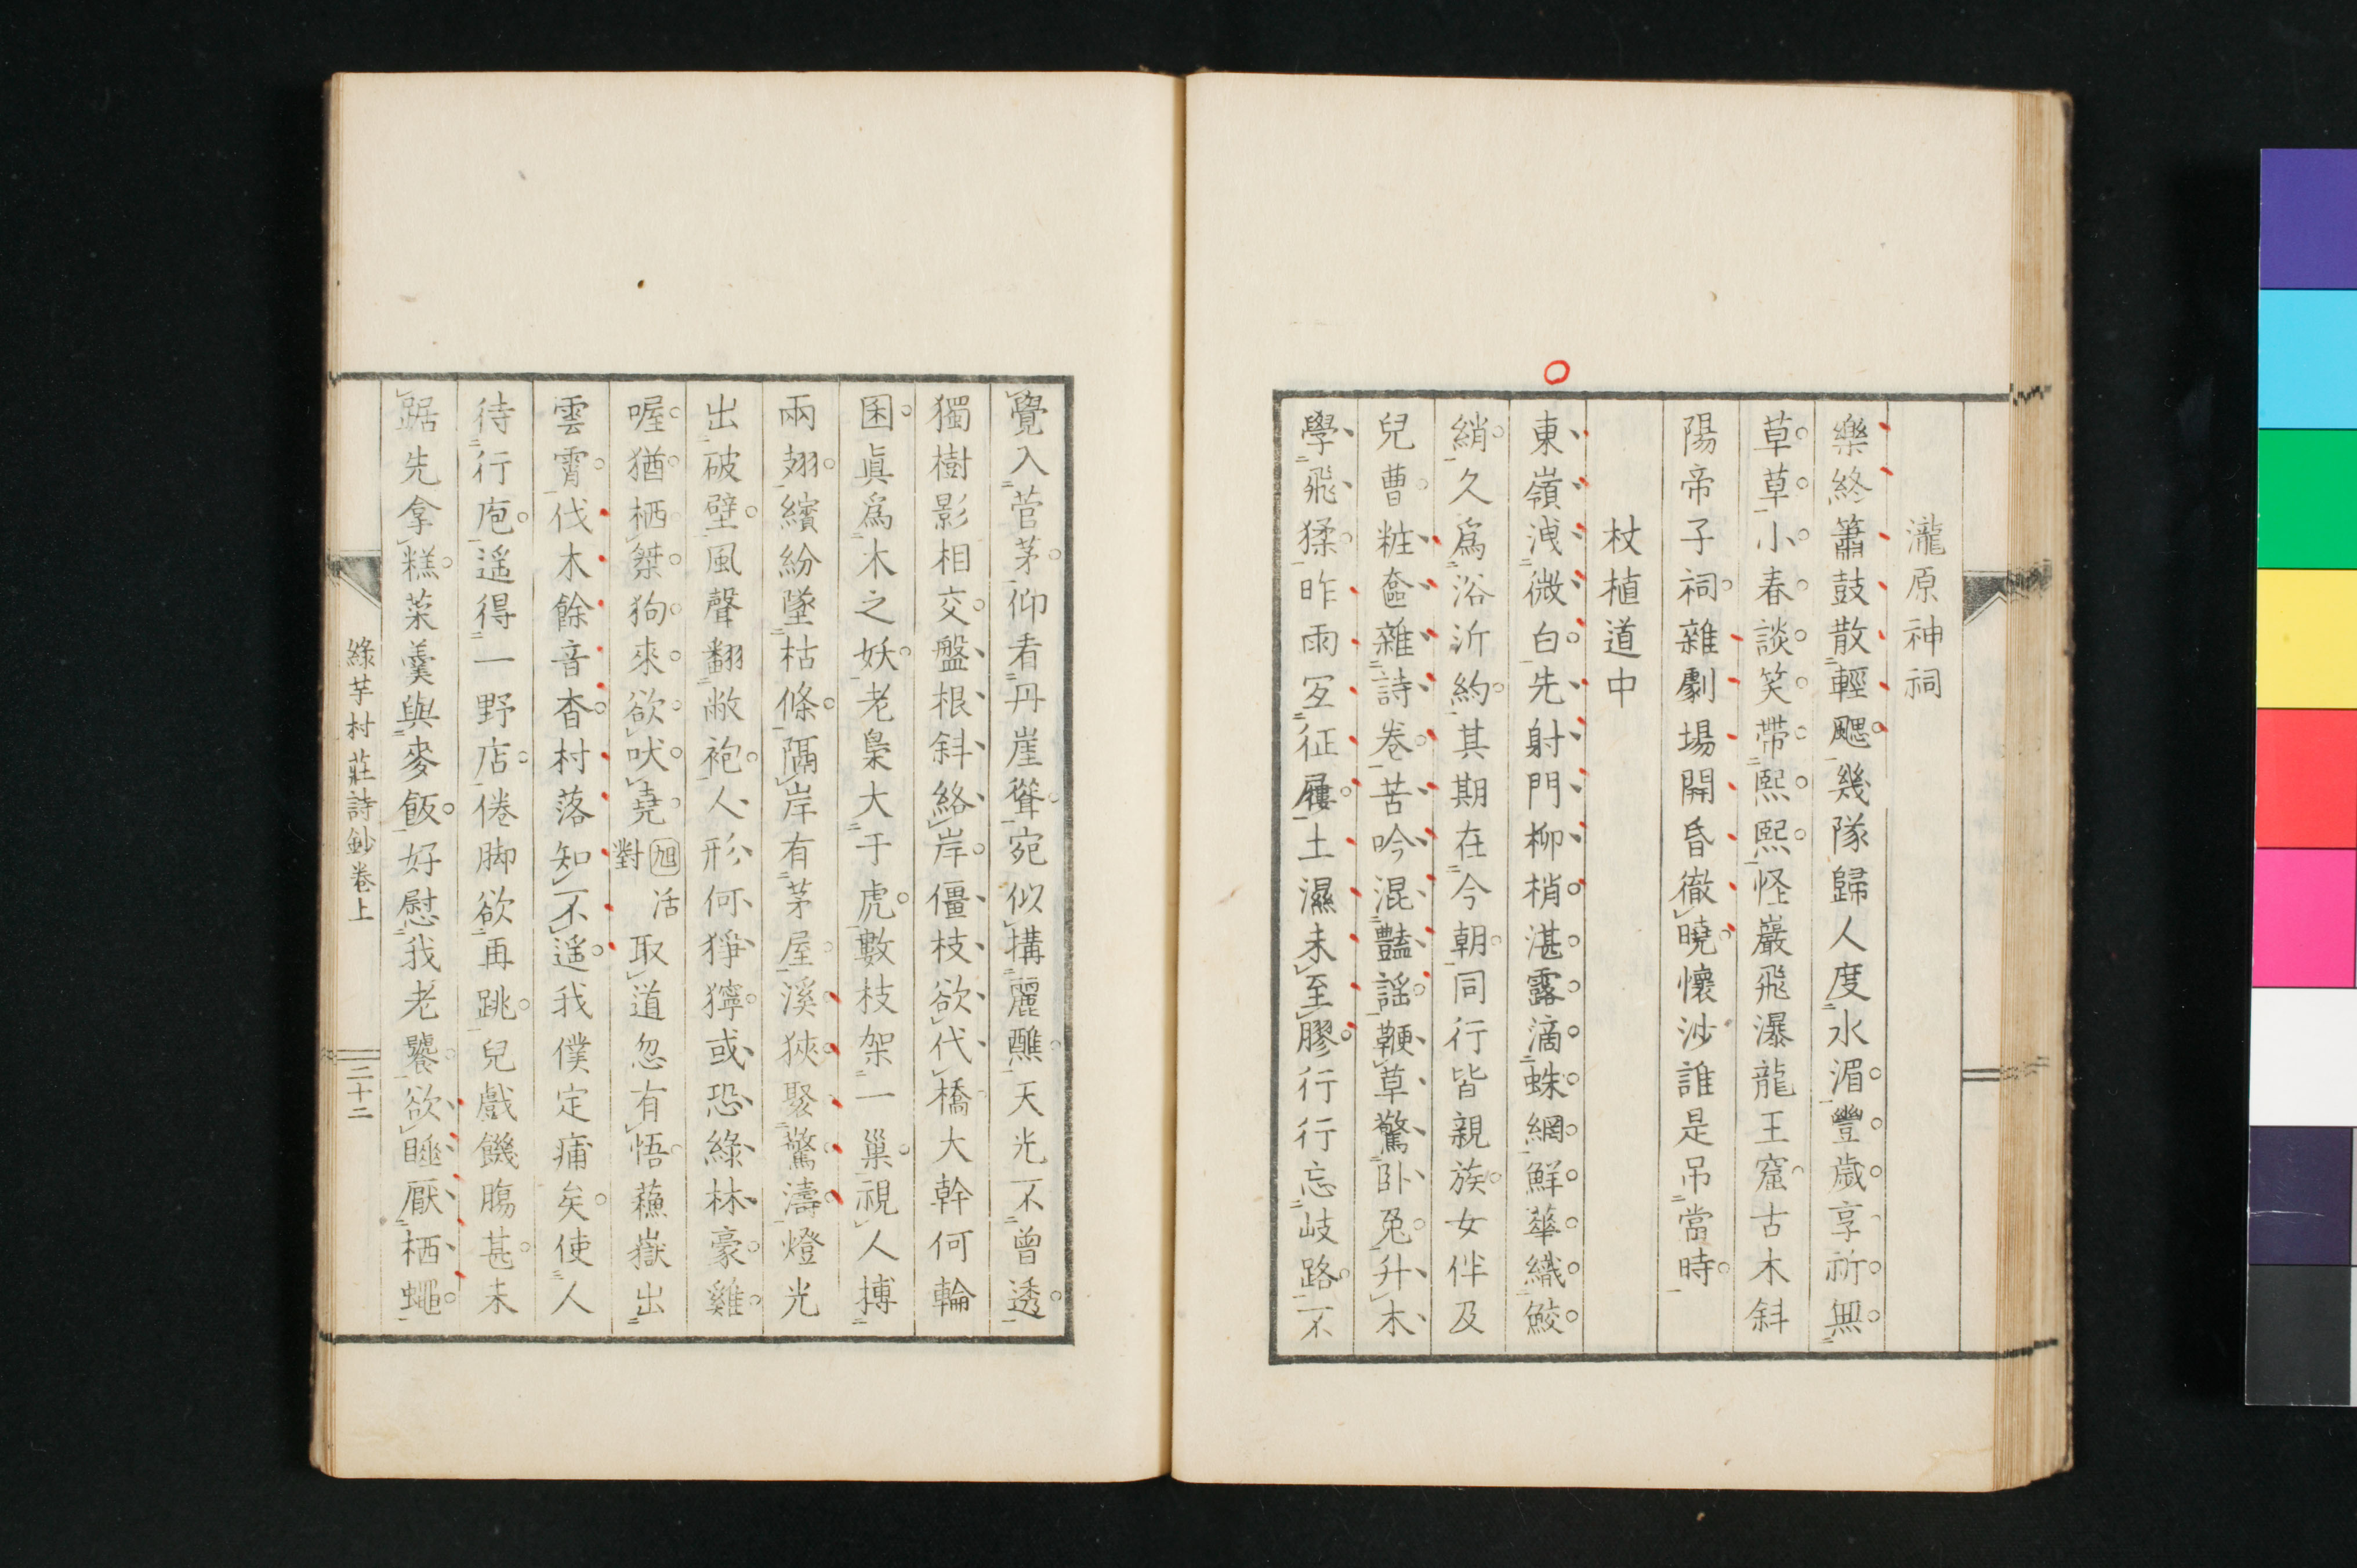 瀧原神祠
樂終簫鼓散輕颸幾隊歸人度水湄豐歲享祈無
草草小春談笑帶熙熙怪巖飛瀑龍王窟古木斜
陽帝子祠雜劇場開昏徹曉懷沙誰是吊當時
杖植道中
東嶺洩微白先射門柳梢湛露滴蛛網鮮華織鮫
綃久爲浴沂約其期在今朝同行皆親族女伴及
兒曹粧奩雜詩卷苦吟混豔謠鞭草驚臥兔升木
學飛猱昨雨妄征屨土濕未至膠行行忘岐路不
覺入菅茅仰看丹崖聳宛似搆麗醮天光不曾透
獨樹影相交盤根斜絡岸僵枝欲代橋大幹何輪
囷眞爲木之妖老梟大于虎數枝架一巢視人搏
兩翅繽紛墜枯條隔岸有茅屋溪狹聚驚濤燈光
出破壁風聲翻敝袍人形何猙獰或恐綠林豪雞
喔猶栖桀狗來欲吠堯旭活對取道忽有悟蘓嶽出
雲霄伐木餘音杳村落知不遥我僕定痡矣使人
待行庖遥得一野店倦脚欲再跳兒戲饑腸甚未
踞先拿糕菜羹與麥飯好慰我老饕欲睡厭栖蠅
綠芋村莊詩鈔卷上
三十二